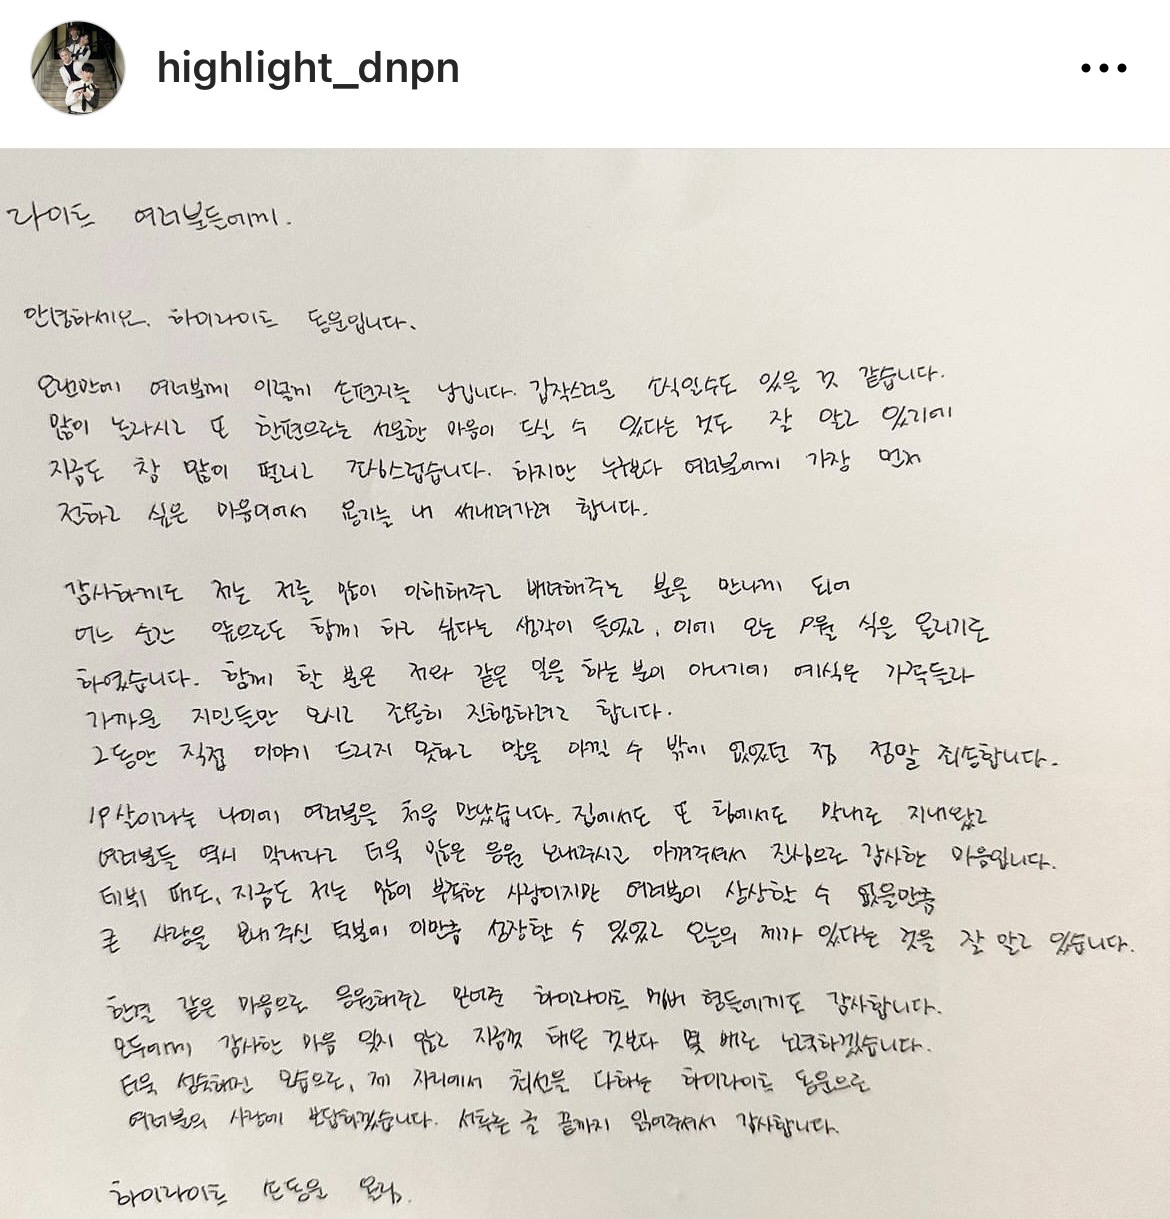 highlight_dnpn
라이트 여러분들에게.
안녕하세요. 하이라이트 동운입니다.
오랜만에 여러분께 이렇게 손편지를 남깁니다. 갑작스러운 소식일수도 있을 것 같습니다.
많이 놀라시고 또 한편으로는 서운한 마음이 드실 수 있다는 것도 잘 알고 있기에
지금도 참 많이 떨리고 조심스럽습니다. 하지만 누구보다 여러분에게 가장 먼저
전하고 싶은 마음이어서 용기를 내 써내려가려 합니다.
감사하게도 저는 저를 많이 이해해주고 배려해주는 분을 만나게 되어
어느 순간 앞으로도 함께 하고 싶다는 생각이 들었고, 이에 오는 9월 식을 올리기로
하였습니다. 함께 할 분은 저와 같은 일을 하는 분이 아니기에 예식은 가족들과
가까운 지인들만 모시고 조용히 진행하려고 합니다.
그동안 직접 이야기 드리지 못하고 말을 아낄 수 밖에 없었던 점 정말 죄송합니다.
19살이라는 나이에 여러분을 처음 만났습니다. 집에서도 또 팀에서도 막내로 지내왔고
여러분들 역시 막내라고 더욱 많은 응원 보내주시고 아껴주셔서 진심으로 감사한 마음입니다.
데뷔 때도, 지금도 저는 많이 부족한 사람이지만 여러분이 상상할 수 없을만큼
큰 사랑을 보내 주신 덕분에 이만큼 성장할 수 있었고 오늘의 제가 있다는 것을 잘 알고 있습니다.
한결 같은 마음으로 응원해주고 믿어준 하이라이트 멤버 형들에게도 감사합니다.
모두에게 감사한 마음 잊지 않고 지금껏 해온 것보다 몇 배로 노력하겠습니다.
더욱 성숙해진 모습으로, 제 자리에서 최선을 다하는 하이라이트 동운으로
여러분의 사랑에 보답하겠습니다. 서툰 글 끝까지 읽어주셔서 감사합니다.
하이라이트 손동운 올림.